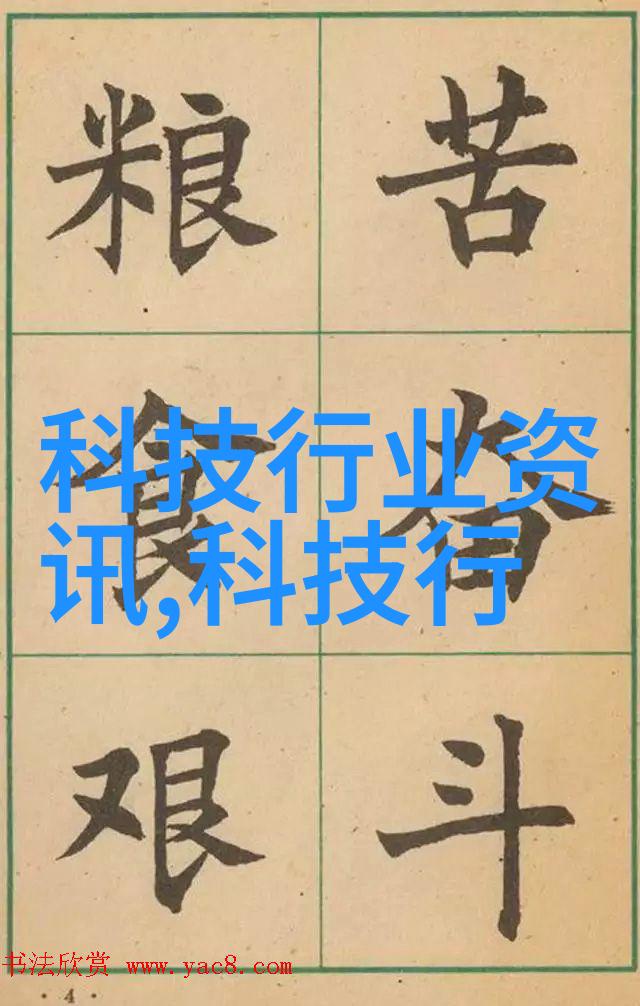 粮食艰
苦奋斗
科技行业资
讯,科技行
书法欣赏 www.yac8.com
· 4 ·